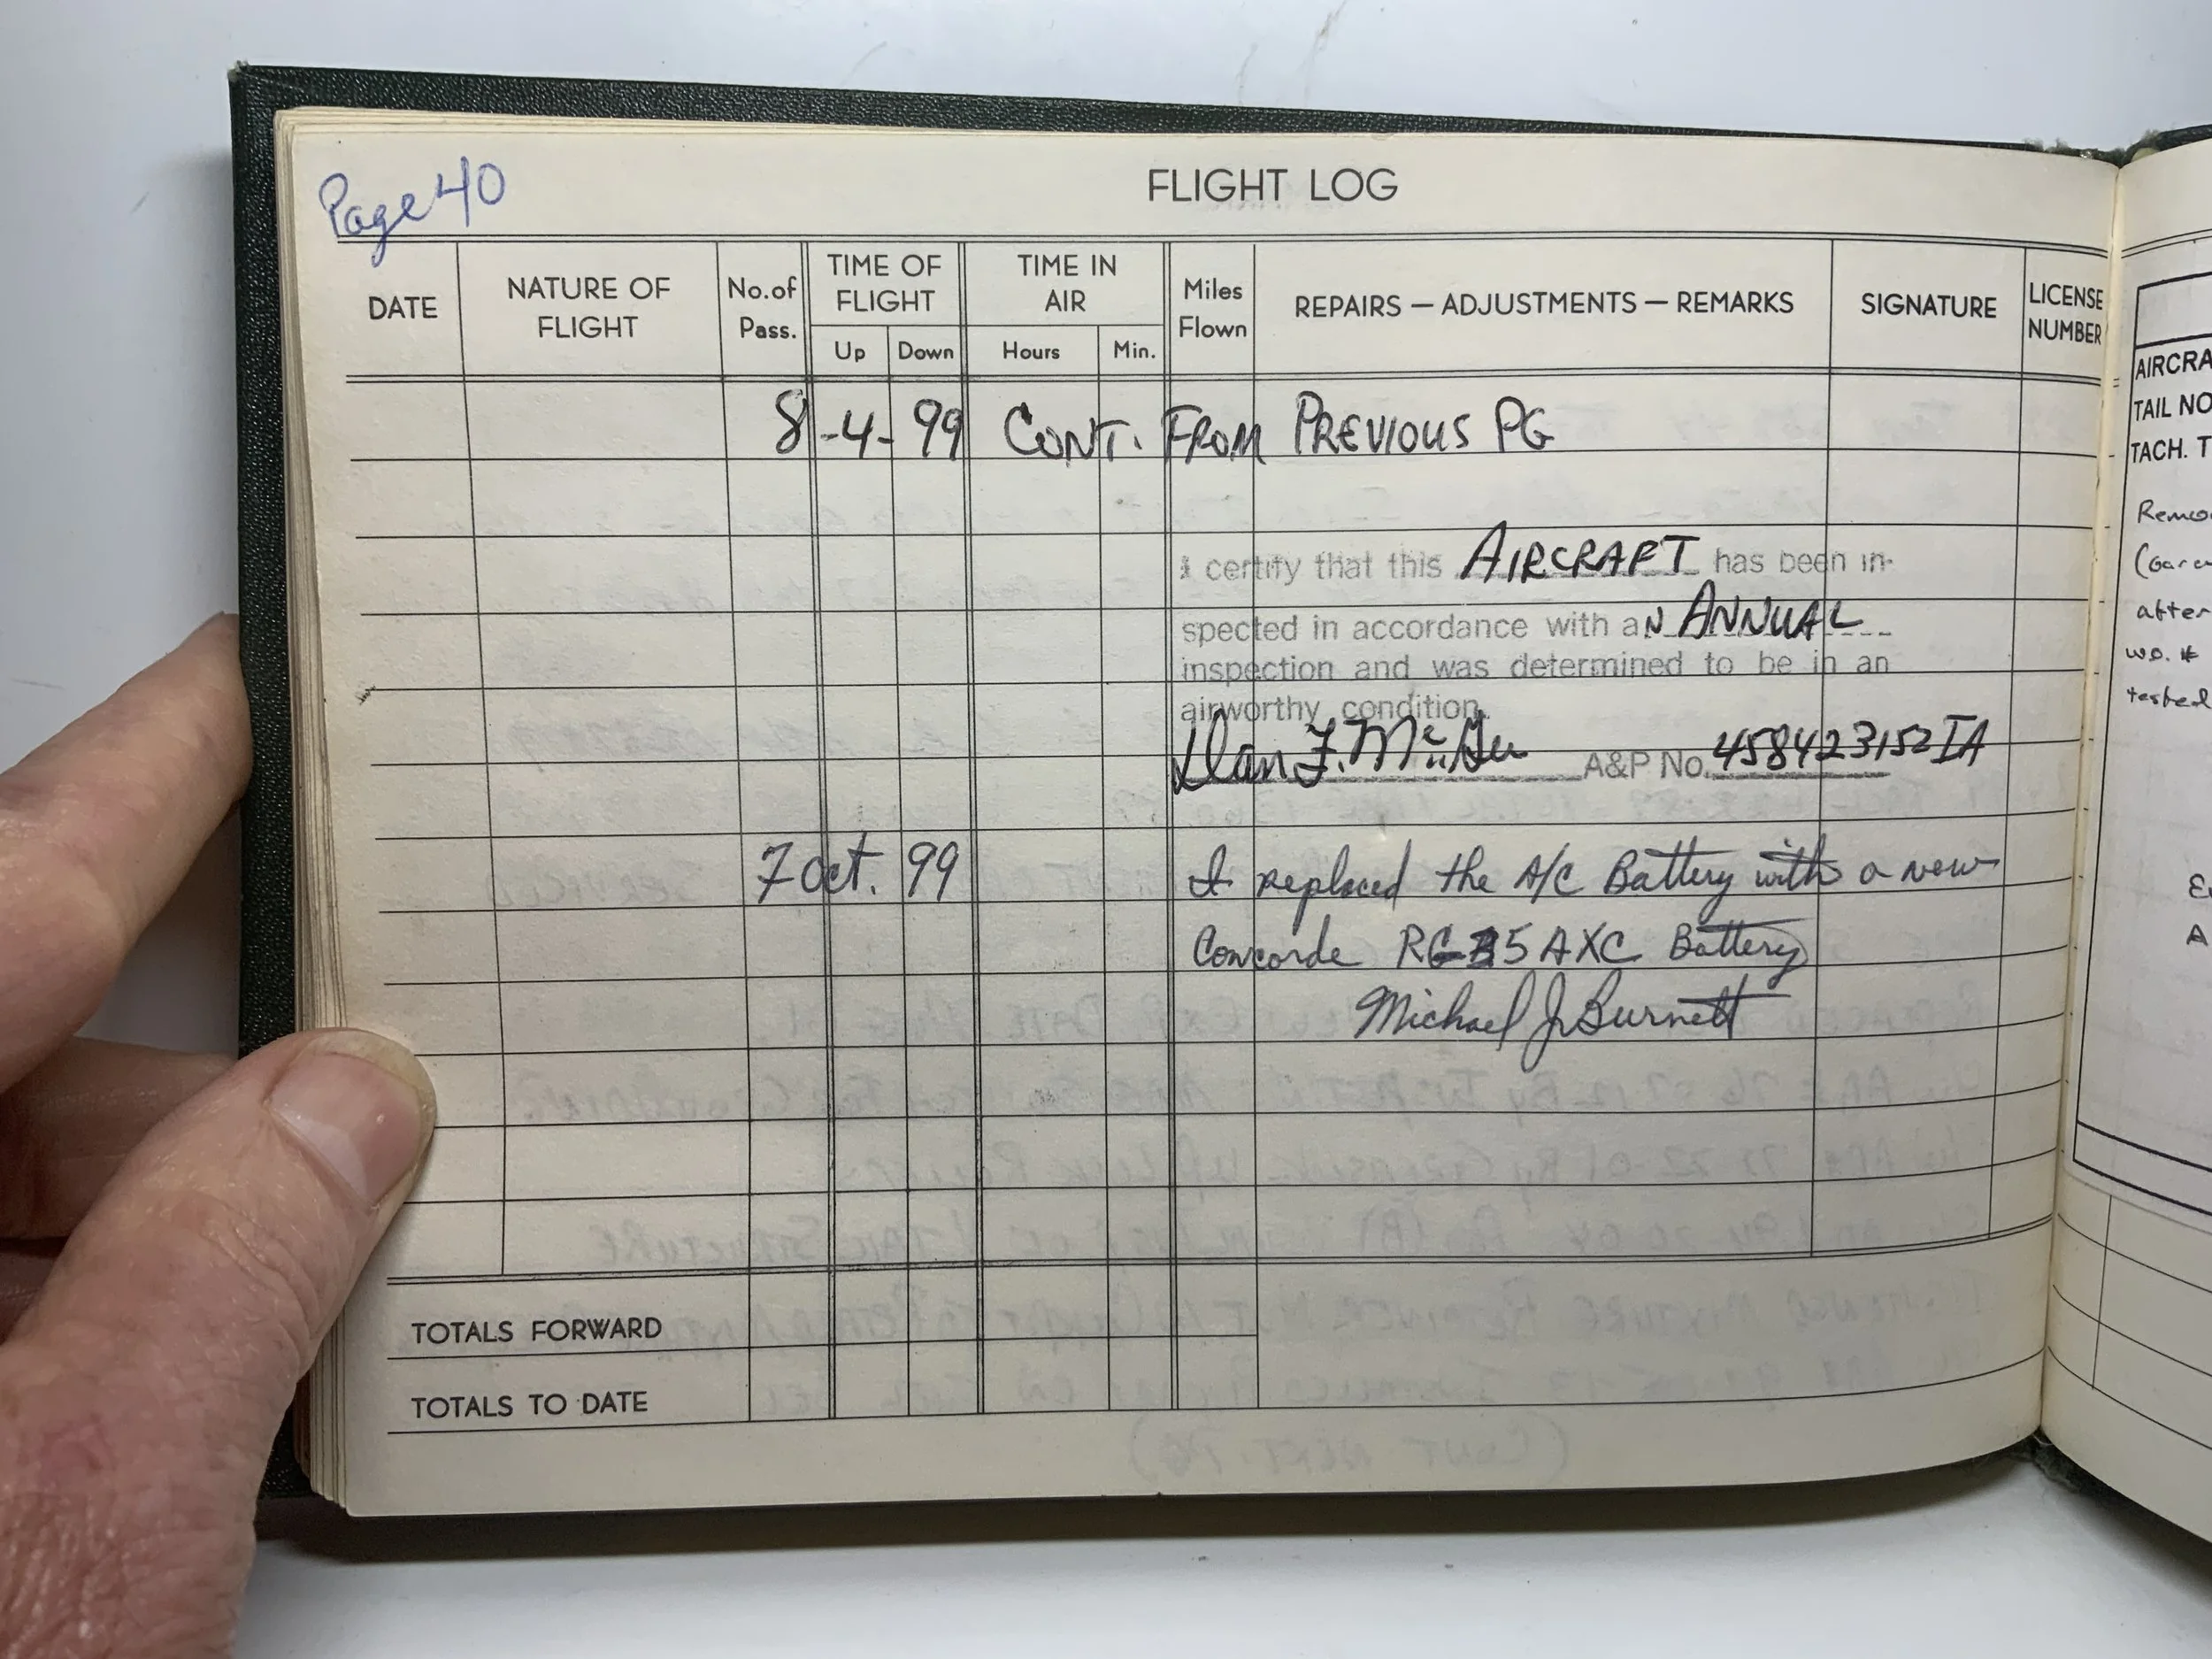 Page 40
FLIGHT LOG
DATE
NATURE OF FLIGHT
No.of Pass.
TIME OF FLIGHT
Up
Down
TIME IN AIR
Hours
Min.
Miles Flown
REPAIRS — ADJUSTMENTS — REMARKS
SIGNATURE
LICENSE NUMBER
8-4-99 CONT. FROM PREVIOUS PG
I certify that this AIRCRAFT has been in-
spected in accordance with aN ANNUAL
inspection and was determined to be in an
airworthy condition.
Dan F. A&P No. 458423152IA
7 Oct. 99 I replaced the A/C Battery with a new
Concorde AXC Battery
Michael J. Burnett
TOTALS FORWARD
TOTALS TO DATE
AIRCRA
TAIL NO
TACH. T
Remo
(Gar
after
W.O. #
tested
A